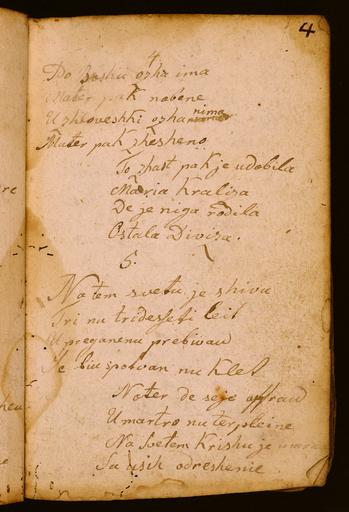 4
4.
Po boshie ozha ima
Mater pak nobene
U zhloveshki ozha nima
Mater pak zhesheno
To zhast pak je udobila
Maria Kraliza
De je niga rodila
Ostala Diviza.
5.
Na tem svetu je shivu
Tri nu tridesseti leit
U preganenu prebivau
Je biu spotvan nu klet
Noter de se je offrau
U martro nu terpleine
Na svetem Krishu je
Sa usih odreshenie